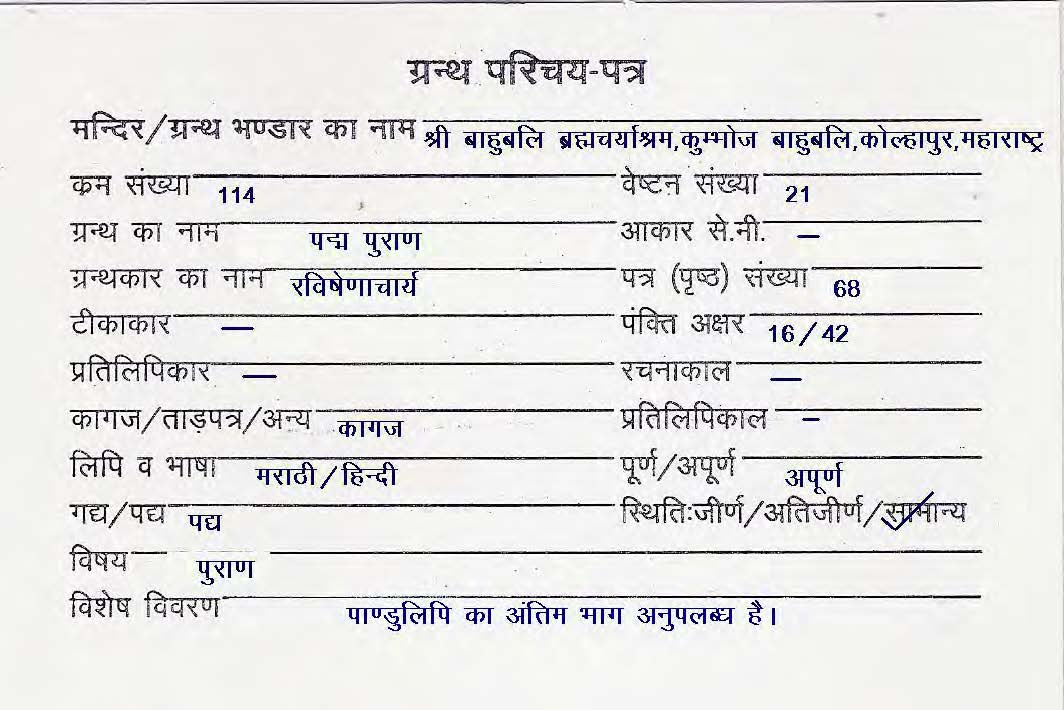 ग्रन्थ परिचय-पत्र
मन्दिर/ग्रन्थ भण्डार का नाम श्री बाहुबलि ब्रह्मचर्याश्रम,कुम्भोज बाहुबलि,कोल्हापुर,महाराष्ट्र
क्रम संख्या 114 वेष्टन संख्या 21
ग्रन्थ का नाम पद्म पुराण आकार से.मी. —
ग्रन्थकार का नाम रविषेणाचार्य पत्र (पृष्ठ) संख्या 68
टीकाकार — पंक्ति अक्षर 16/42
प्रतिलिपिकार — रचनाकाल —
कागज/ताड़पत्र/अन्य कागज प्रतिलिपिकाल —
लिपि व भाषा मराठी/हिन्दी पूर्ण/अपूर्ण अपूर्ण
गद्य/पद्य पद्य स्थिति:जीर्ण/अतिजीर्ण/सामान्य
विषय पुराण
विशेष विवरण पाण्डुलिपि का अंतिम भाग अनुपलब्ध है।